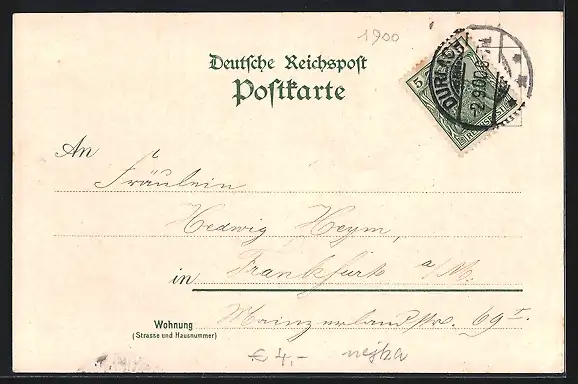 1900
Deutsche Reichspost
Postkarte
DURLACH
-2.9.00.
5
An
Fräulein
Hedwig Heym,
in Frankfurt a/M.
Wohnung
(Strasse und Hausnummer)
Mainzerlandstr. 69 I.
€ 4,-